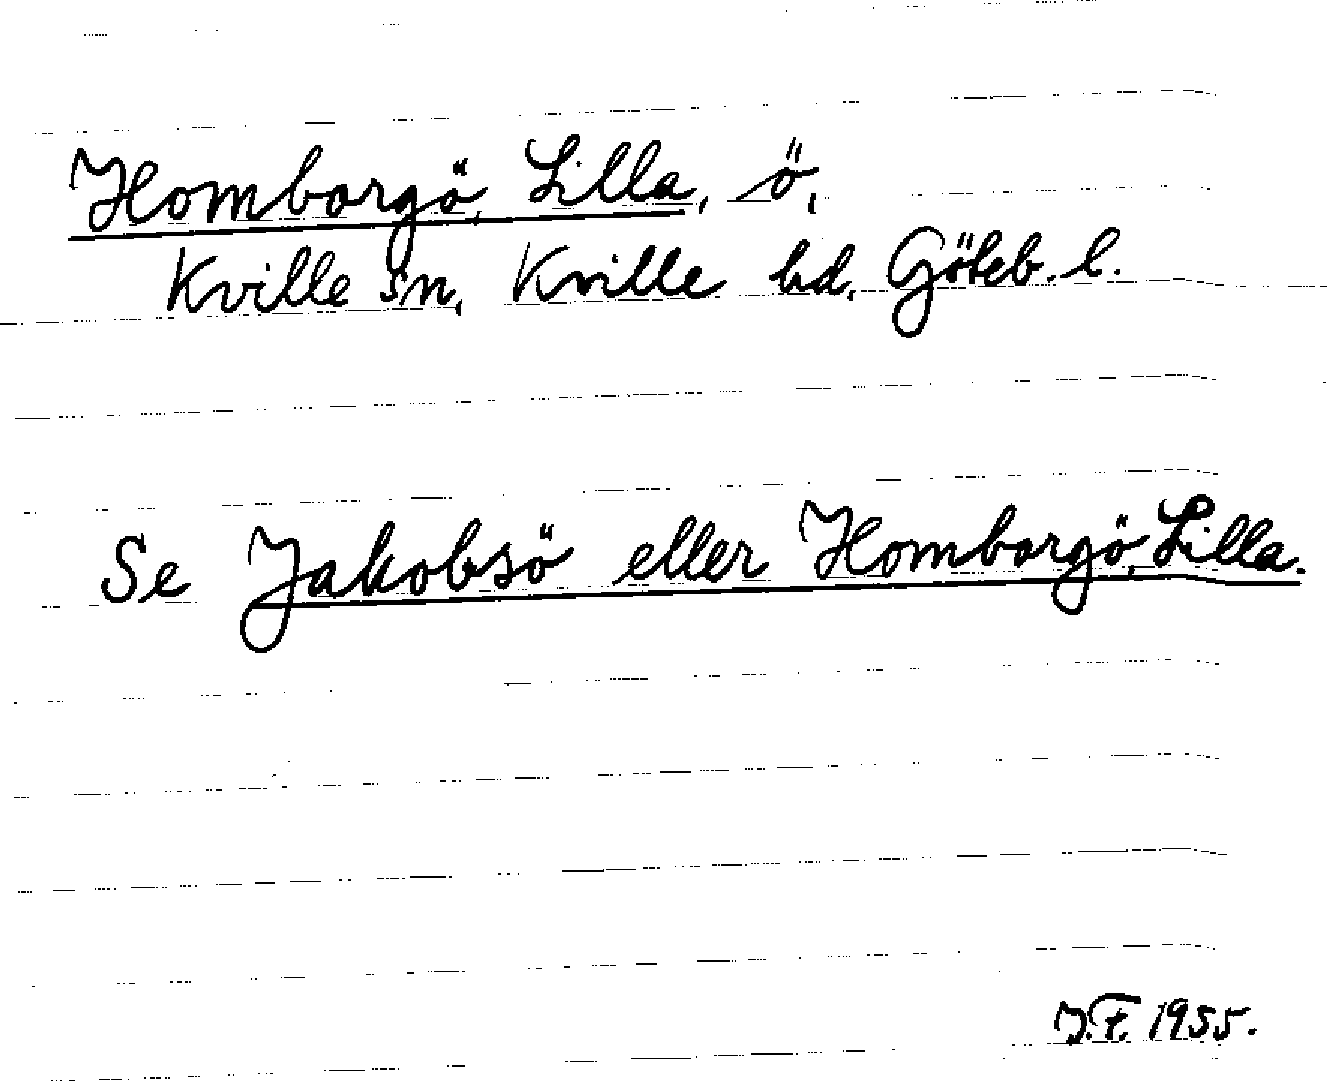 Homborgö, Lilla, ö,
Kville sn, Kville hd, Göteb. l.
Se Jakobsö eller Homborgö, Lilla.
J.F. 1955.